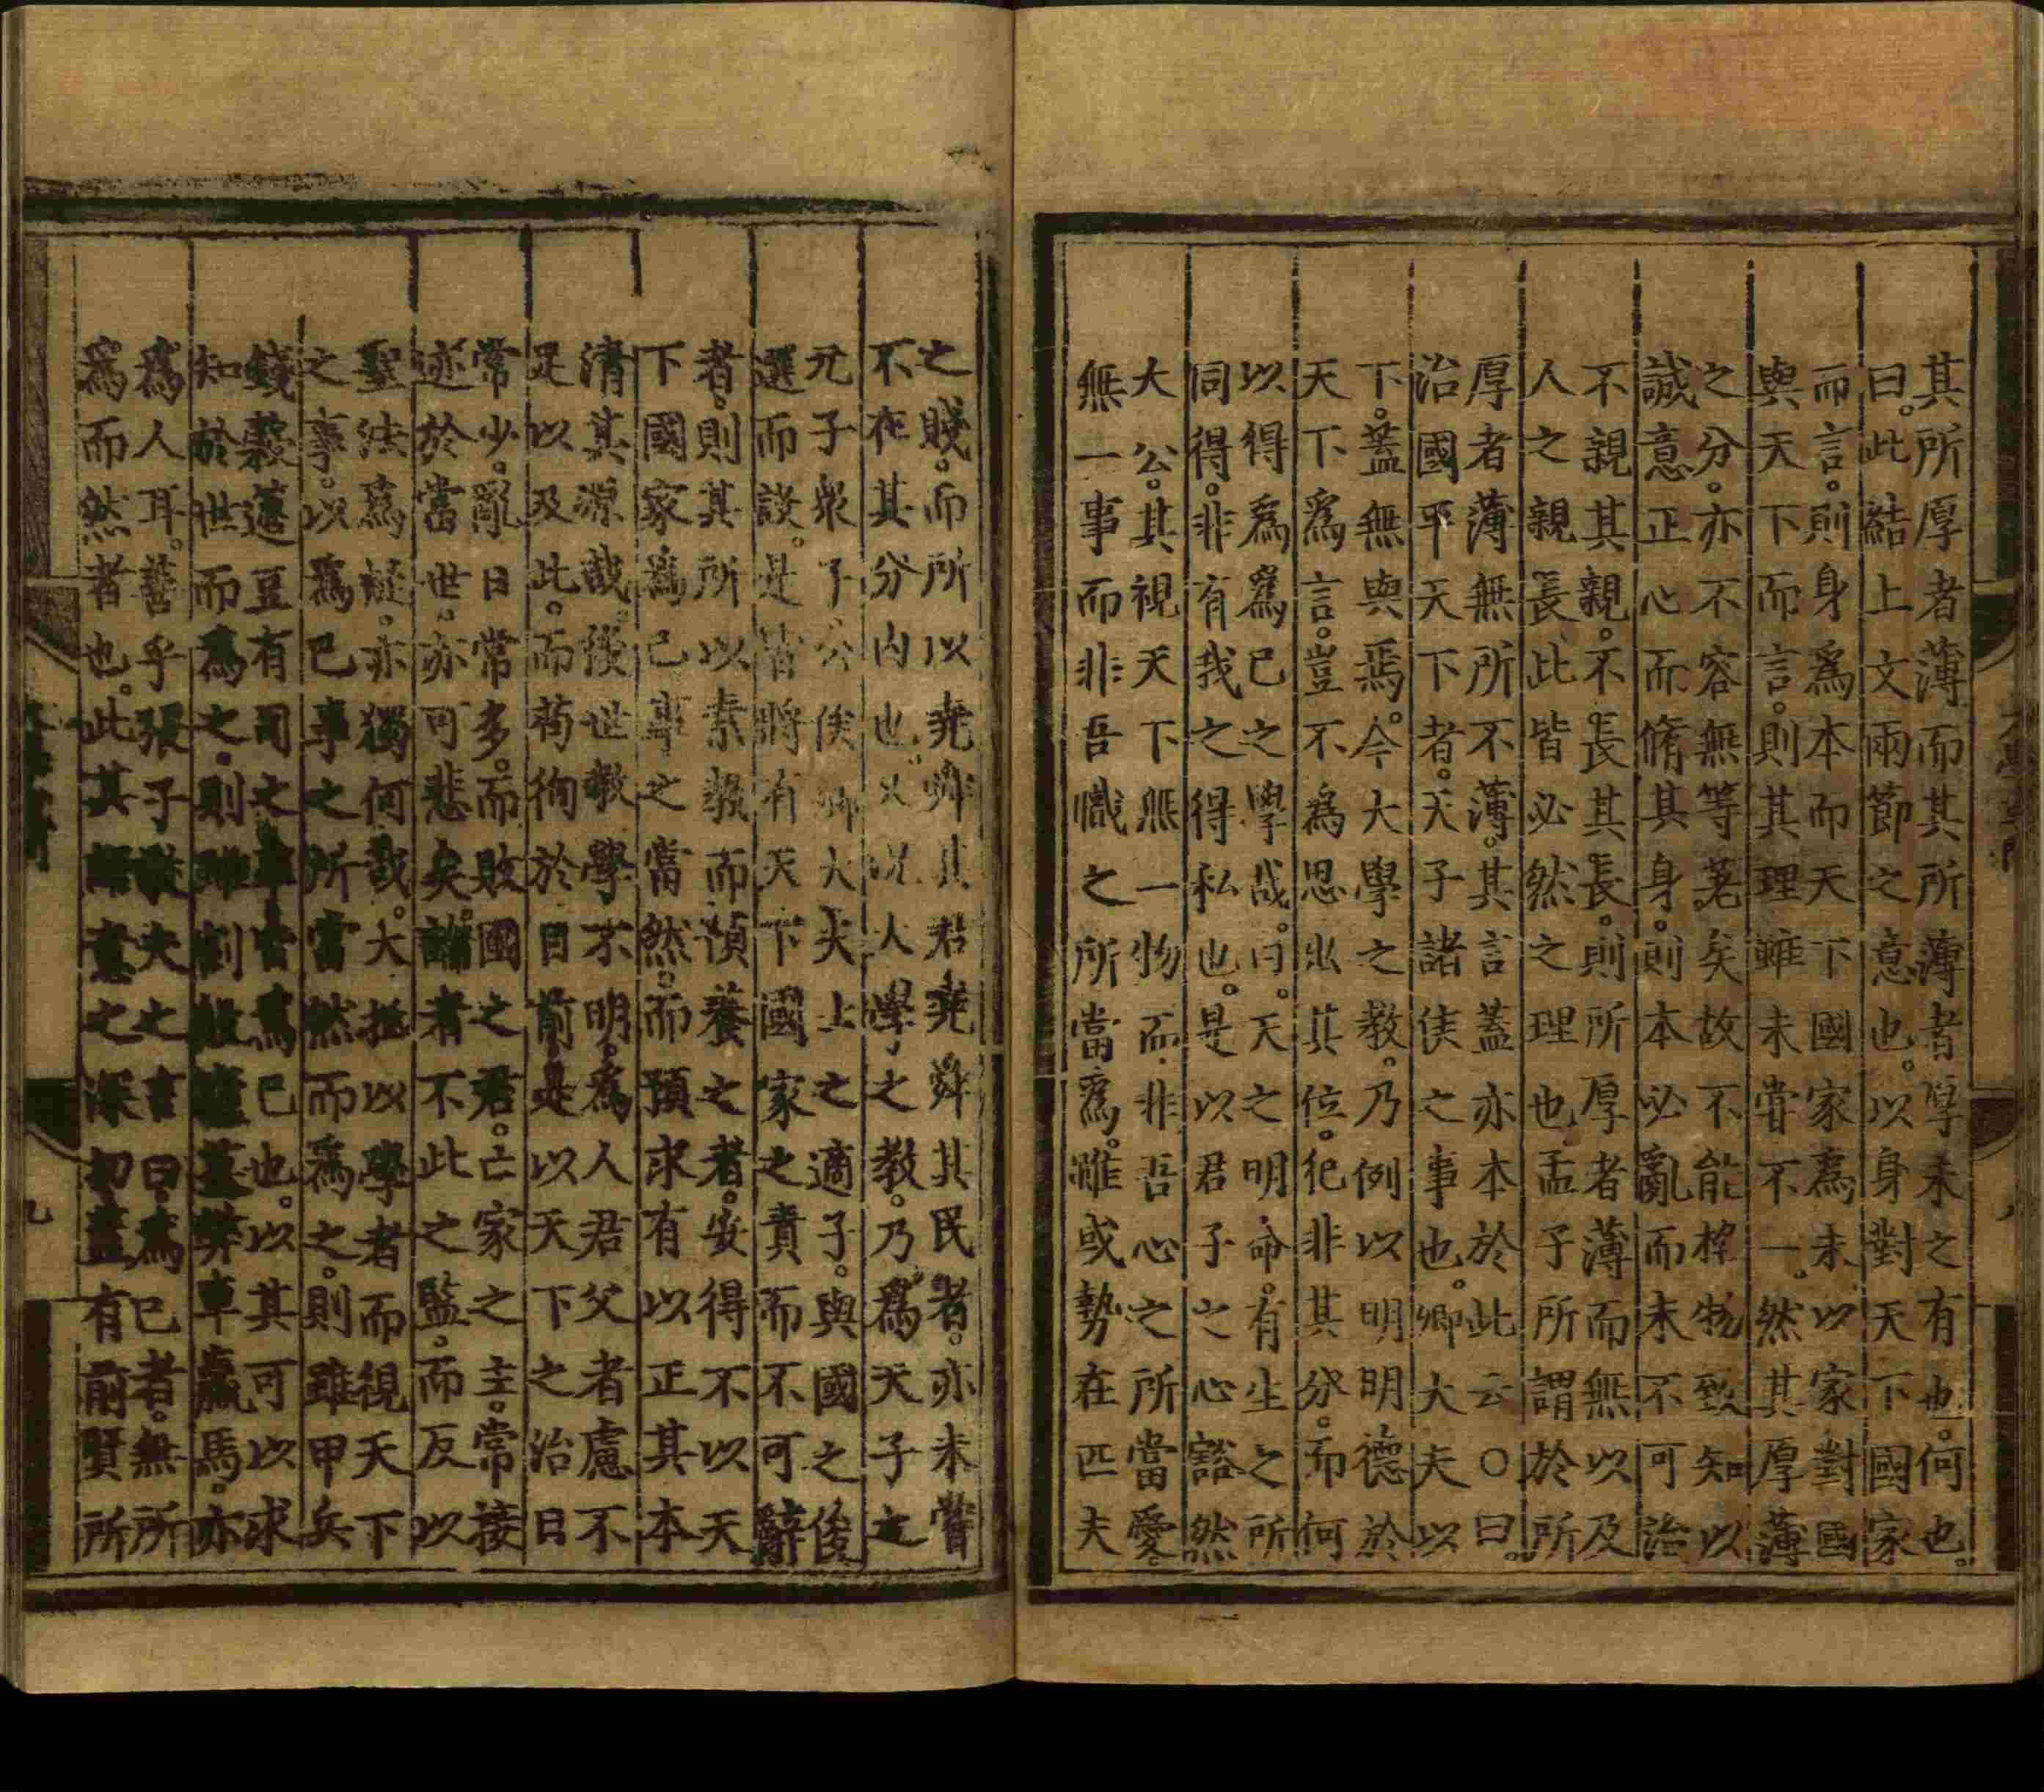 其所厚者薄而其所薄者厚未之有也。何也。
曰。此結上文兩節之意也。以身對天下國家
而言。則身爲本而天下國家爲未。以家對國
與天下而言。則其理雖未甞不一。然其厚薄
之分。亦不容無等差矣故不能格物致知以
誠意正心而脩其身。則本必亂而末不可治
不親其親。不長其長。則所厚者薄而無以及
人之親長此皆必然之理也。孟子所謂於所
厚者薄無所不薄。其言蓋亦本於此云○曰。
治國平天下者。天子諸侯之事也。卿大夫以
下。蓋無與焉。今大學之教。乃例以明明德於
天下爲言。豈不爲思出其位。犯非其分。而何
以得爲爲已之學哉。曰。天之明命。有生之所
同得。非有我之得私也。是以君子之心豁然
大公。其視天下無一物而非吾心之所當愛。
無一事而非吾職之所當爲。雖或勢在匹夫
之賤。而所以堯舜其君堯舜其民者。亦未嘗
不在其分內也。又况大學之教。乃爲天子之
元子衆子公侯卿大夫士之適子。與國之俊
選而設。是皆將有天下國家之責而不可辭
者。則其所以素教而預養之者。安得不以天
下國家爲己事之當然。而預求有以正其本
清其源哉。後世教學不明。爲人君父者慮不
足以及此。而苟徇於目前。是以天下之治日
常少。亂日常多。而敗國之君。亡家之主。常接
迹於當世。亦可悲矣。論者不此之監。而反以
聖法爲疑。亦獨何哉。大抵以學者而視天下
之事。以爲已事之所當然而爲之。則雖甲兵
錢穀籩豆有司之事皆爲己也。以其可以求
知於世而爲之。則雖割股廬墓弊車羸馬。亦
爲人耳。善乎張子敬夫之言曰。爲已者。無所
爲而然者也。此其語意之深切。蓋有前賢所